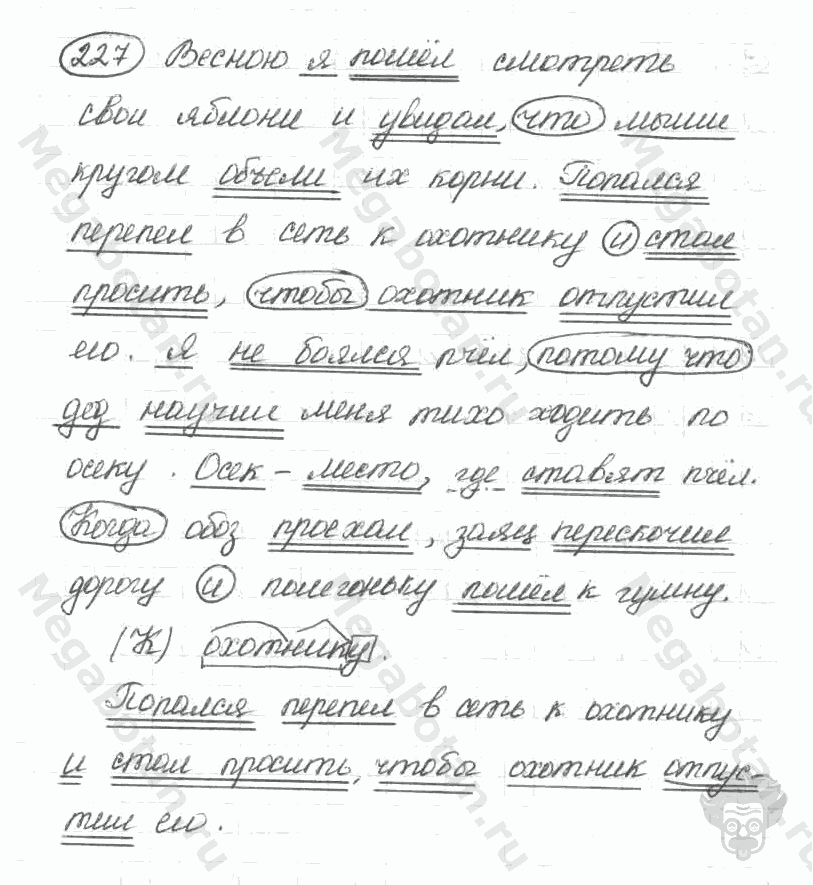 227 Весною я пошёл смотреть
свои яблони и увидал, что мыши
кругом объели их корни. Попался
перепел в сеть к охотнику и стал
просить, чтобы охотник отпустил
его. Я не боялся пчёл, потому что
дед научил меня тихо ходить по
осеку. Осек – место, где ставят пчёл.
Когда обоз проехал, заяц перескочил
дорогу и полегоньку пошёл к гумну.
(К) охотнику.
Попался перепел в сеть к охотнику
и стал просить, чтобы охотник отпус-
тил его.
Megabotan.ru
Megabotan.ru
Megabotan.ru
Megabotan.ru
Megabotan.ru
Megabotan.ru